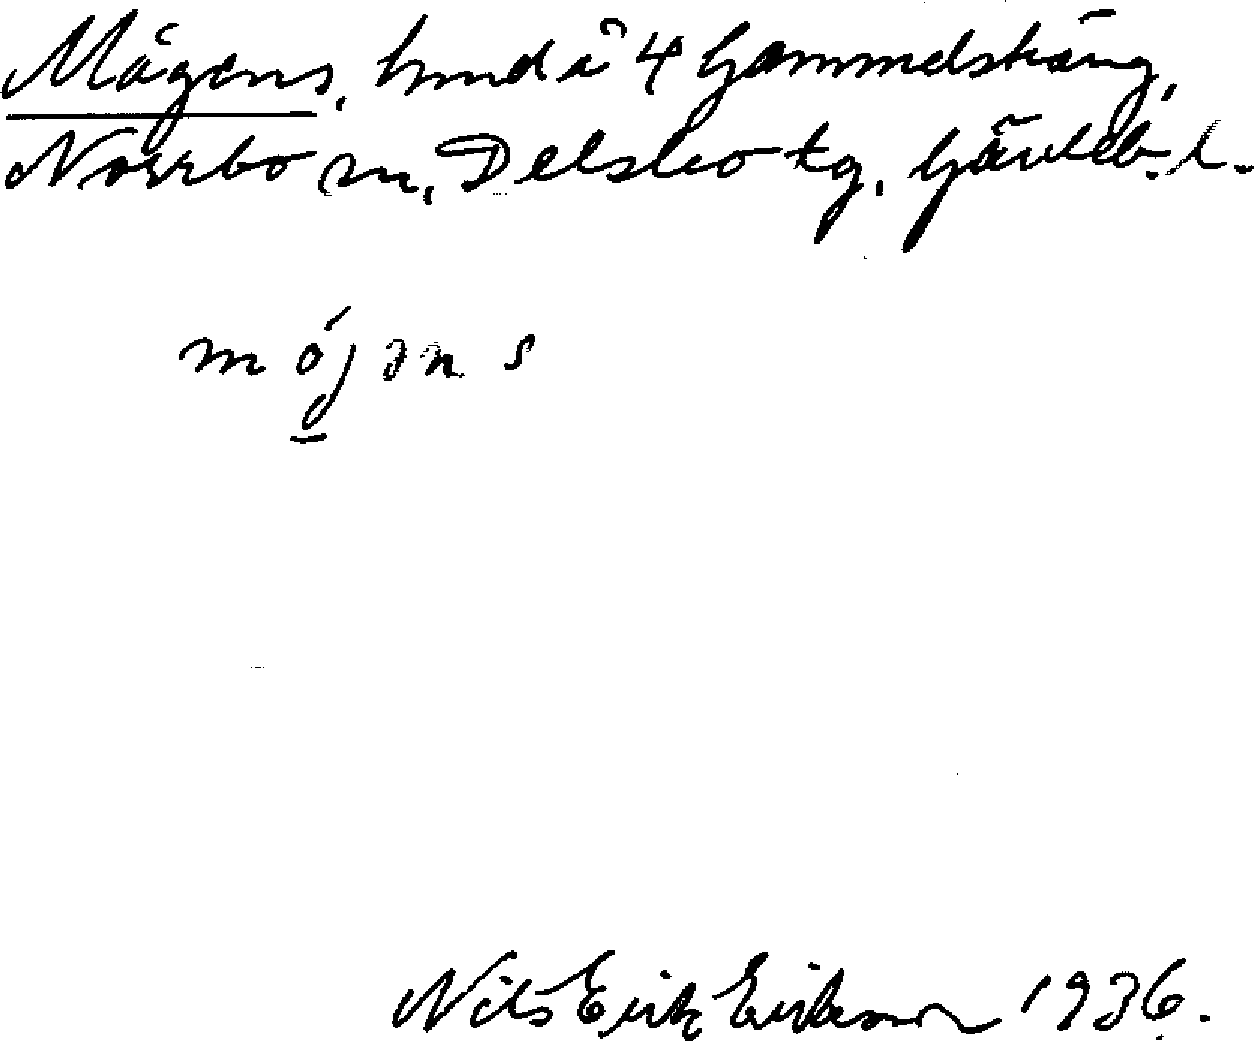 Mågens, hmd i 4 Gammelsträng,
Norrbo sn, Delsbo tg. Gävleb. l.
mójəns
Nils Erik Eriksson 1936.